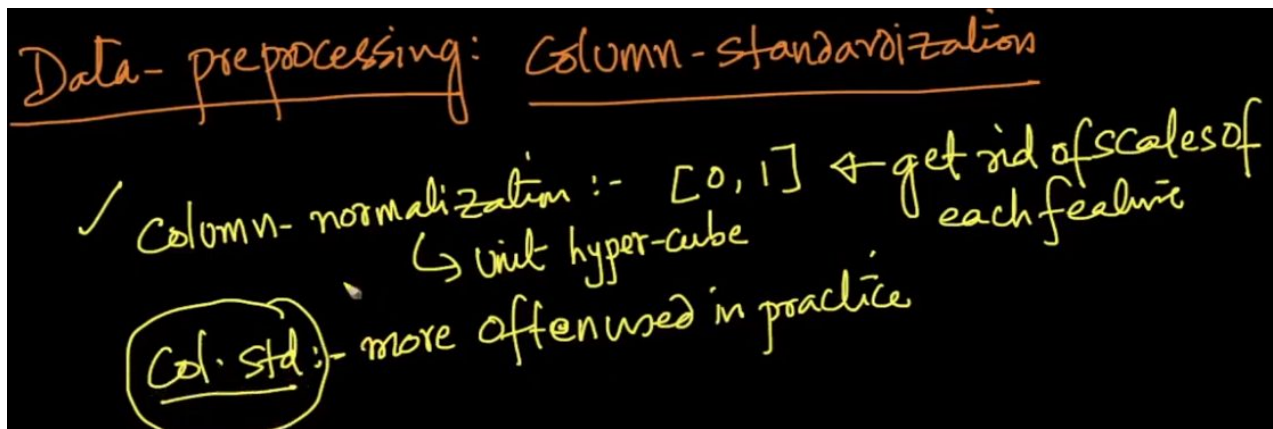 Data-preprocessing: Column-standardization
✓ Column-normalization :- [0, 1] ← get rid of scales of
each feature
↳ unit hyper-cube
Col. std :- more often used in practice